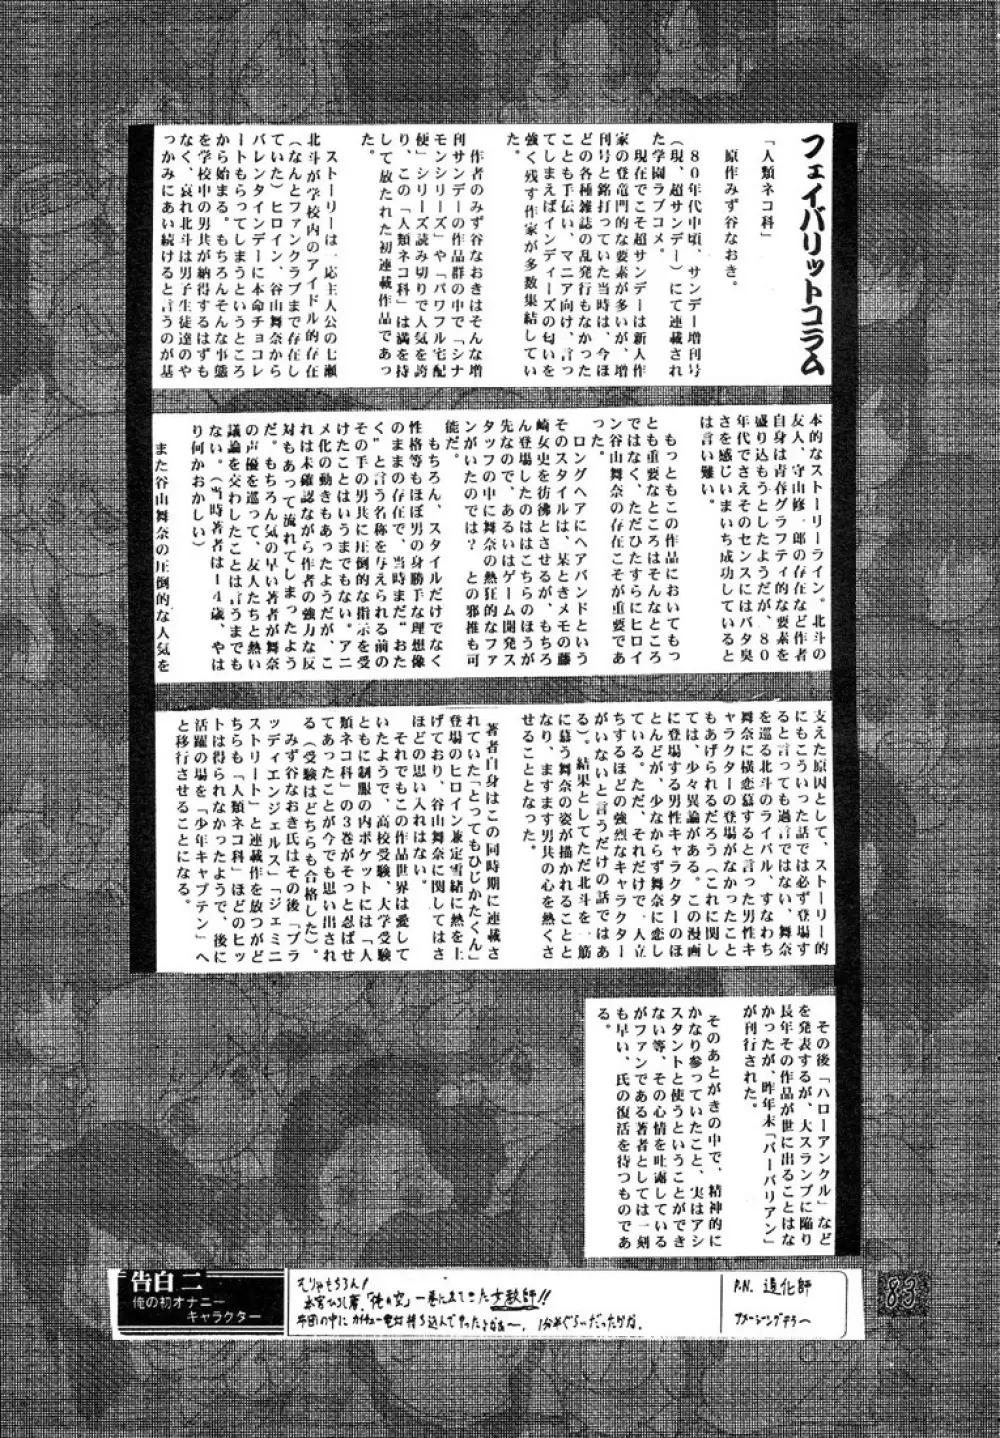 フェイバリットコラム
「人類ネコ科」
原作みず谷なおき。
８０年代中頃、サンデー増刊号
（現、超サンデー）にて連載され
た学園ラブコメ。
現在でこそ超サンデーは新人作
家の登竜門的な要素が多いが、増
刊号と銘打っていた当時は、今ほ
どの各種雑誌の乱発行もなかった
ことも手伝い、マニア向け、言っ
てしまえばインディーズの匂いを
強く残す作家が多数集結してい
た。
作者のみず谷なおきはそんな増
刊サンデーの作品群の中で「シナ
モンシリーズ」や「パワフル宅配
便」シリーズ読み切りで人気を誇
り、この「人類ネコ科」は満を持
して放たれた初連載作品であっ
た。
ストーリーは一応主人公の七瀬
北斗が学校内のアイドル的存在
（なんとファンクラブまで存在し
ていた）ヒロイン、谷山舞奈から
バレンタインデーに本命チョコレ
ートもらってしまうというところ
から始まる。もちろんそんな事態
を学校中の男共が納得するはずも
なく、哀れ北斗は男子生徒達のや
っかみにあい続けると言うのが基
本的なストーリーライン。北斗の
友人、守山修一郎の存在など作者
自身は青春グラフティ的な要素を
盛り込もうとしたようだが、８０
年代でさえそのセンスにはバタ臭
さを感じいまいち成功していると
は言い難い。
もっともこの作品においてもっ
とも重要なところはそんなところ
ではなく、ただひたすらにヒロイ
ン谷山舞奈の存在こそが重要であ
った。
ロングヘアにヘアバンドという
そのスタイルは、某ときメモの藤
崎女史を彷彿とさせるが、もちろ
ん登場したのははこちらのほうが
先なので、あるいはゲーム開発ス
タッフの中に舞奈の熱狂的なファ
ンがいたのでは？　との邪推も可
能だ。
もちろん、スタイルだけでなく
性格等もほぼ男の身勝手な理想像
のままの存在で、当時まだ"おた
く"と言う名称を与えられる前の
その手の男共に圧倒的な指示を受
けたことはいうまでもない。アニ
メ化の動きもあったようだが、こ
れは未確認ながら作者の強力な反
対もあって流れてしまったよう
だ。もちろん気の早い著者が舞奈
の声優を巡って、友人たちと熱い
議論を交わしたことは言うまでも
ない。（当時著者は１４歳、やは
り何かおかしい）
また谷山舞奈の圧倒的な人気を
支えた原因として、ストーリー的
にもこういった話では必ず登場す
ると言っても過言ではない、舞奈
を巡る北斗のライバル、すなわち
舞奈に横恋慕すると言った男性キ
ャラクターの登場がなかったこと
もあげられるだろう（これに関し
ては、少々異論がある。この漫画
に登場する男性キャラクターのほ
とんどが、少なからず舞奈に恋し
ている。ただ、それだけで、人立
ちするほどの強烈なキャラクター
がいないと言うだけの話ではあ
る）、結果としてただ北斗を一筋
に慕う舞奈の姿が描かれることと
なり、ますます男共の心を熱くさ
せることとなった。
著者自身はこの同時期に連載さ
れていた「とってもひじかたくん」
登場のヒロイン兼定雪緒に熱を上
げており、谷山舞奈に関してはさ
ほどの思い入れはない。
それでもこの作品世界は愛して
いたようで、高校受験、大学受験
ともに制服の内ポケットには「人
類ネコ科」の３巻がそっと忍ばせ
てあったことが今でも思い出され
る（受験はどちらも合格した）。
みず谷なおき氏はその後「ブラ
ッディエンジェルス」「ジェミニ
ストリート」と連載作を放つがど
ちらも「人類ネコ科」ほどのヒッ
トは得られなかったようで、後に
活躍の場を「少年キャプテン」へ
と移行させることになる。
その後「ハローアンクル」など
を発表するが、大スランプに陥り
長年その作品が世に出ることはな
かったが、昨年末「バーバリアン」
が刊行された。
そのあとがきの中で、精神的に
かなり参っていたこと、実はアシ
スタントと使うということができ
ない等、その心情を吐露している
がファンである著者としては一刻
も早い、氏の復活を待つものであ
る。
告白二
俺の初オナニー
キャラクター
そりゃもちろん！
本宮ひろし著、「俺の空」一巻に出てきた女教師！！
P.N. 道化師
83